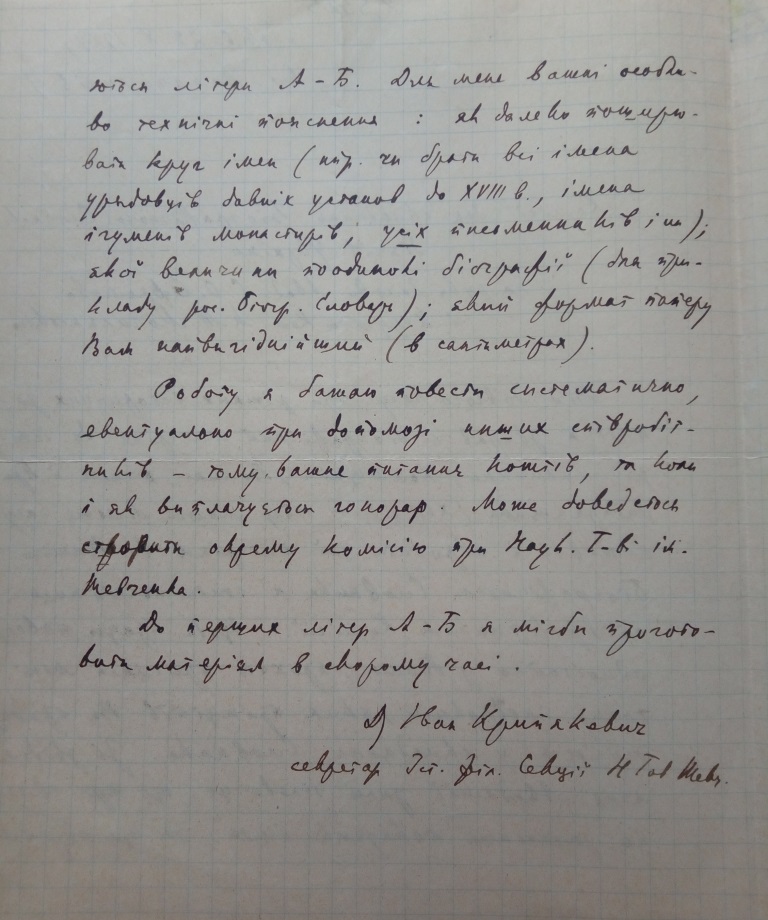 ються літери А – Б. Для мене важні особли-
во технічні пояснення : як далеко поширю-
вати круг імен (нпр. чи брати всі імена
урядовців давніх установ до XVIII в., імена
ігуменів монастирів, усіх письменників і ин);
якої величини поодинокі біографії (для при-
кладу рос. біогр. Словарь); який формат паперу
Вам найвигіднійший (в сантиметрах).
Роботу я бажаю повести систематично,
евентуально при допомозі инших співробіт-
ників – тому важне питання коштів, та коли
і як виплачується гонорар. Може доведеться
створити окрему комісію при Наук. Т-ві ім.
Шевченка.
До перших літер А – Б я мігби пригото-
вити матеріял в скорому часі .
Др Іван Крипякевич
секретар Іст. філ. Секції Н Тов Шевч.